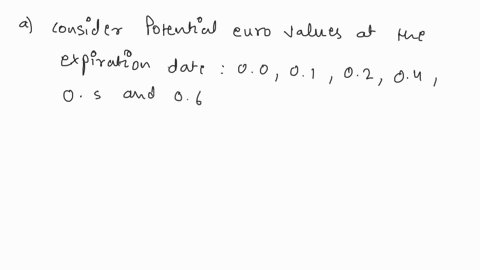 a) consider Potential euro values at the
expiration date : 0.0, 0.1, 0.2, 0.4,
0.5 and 0.6